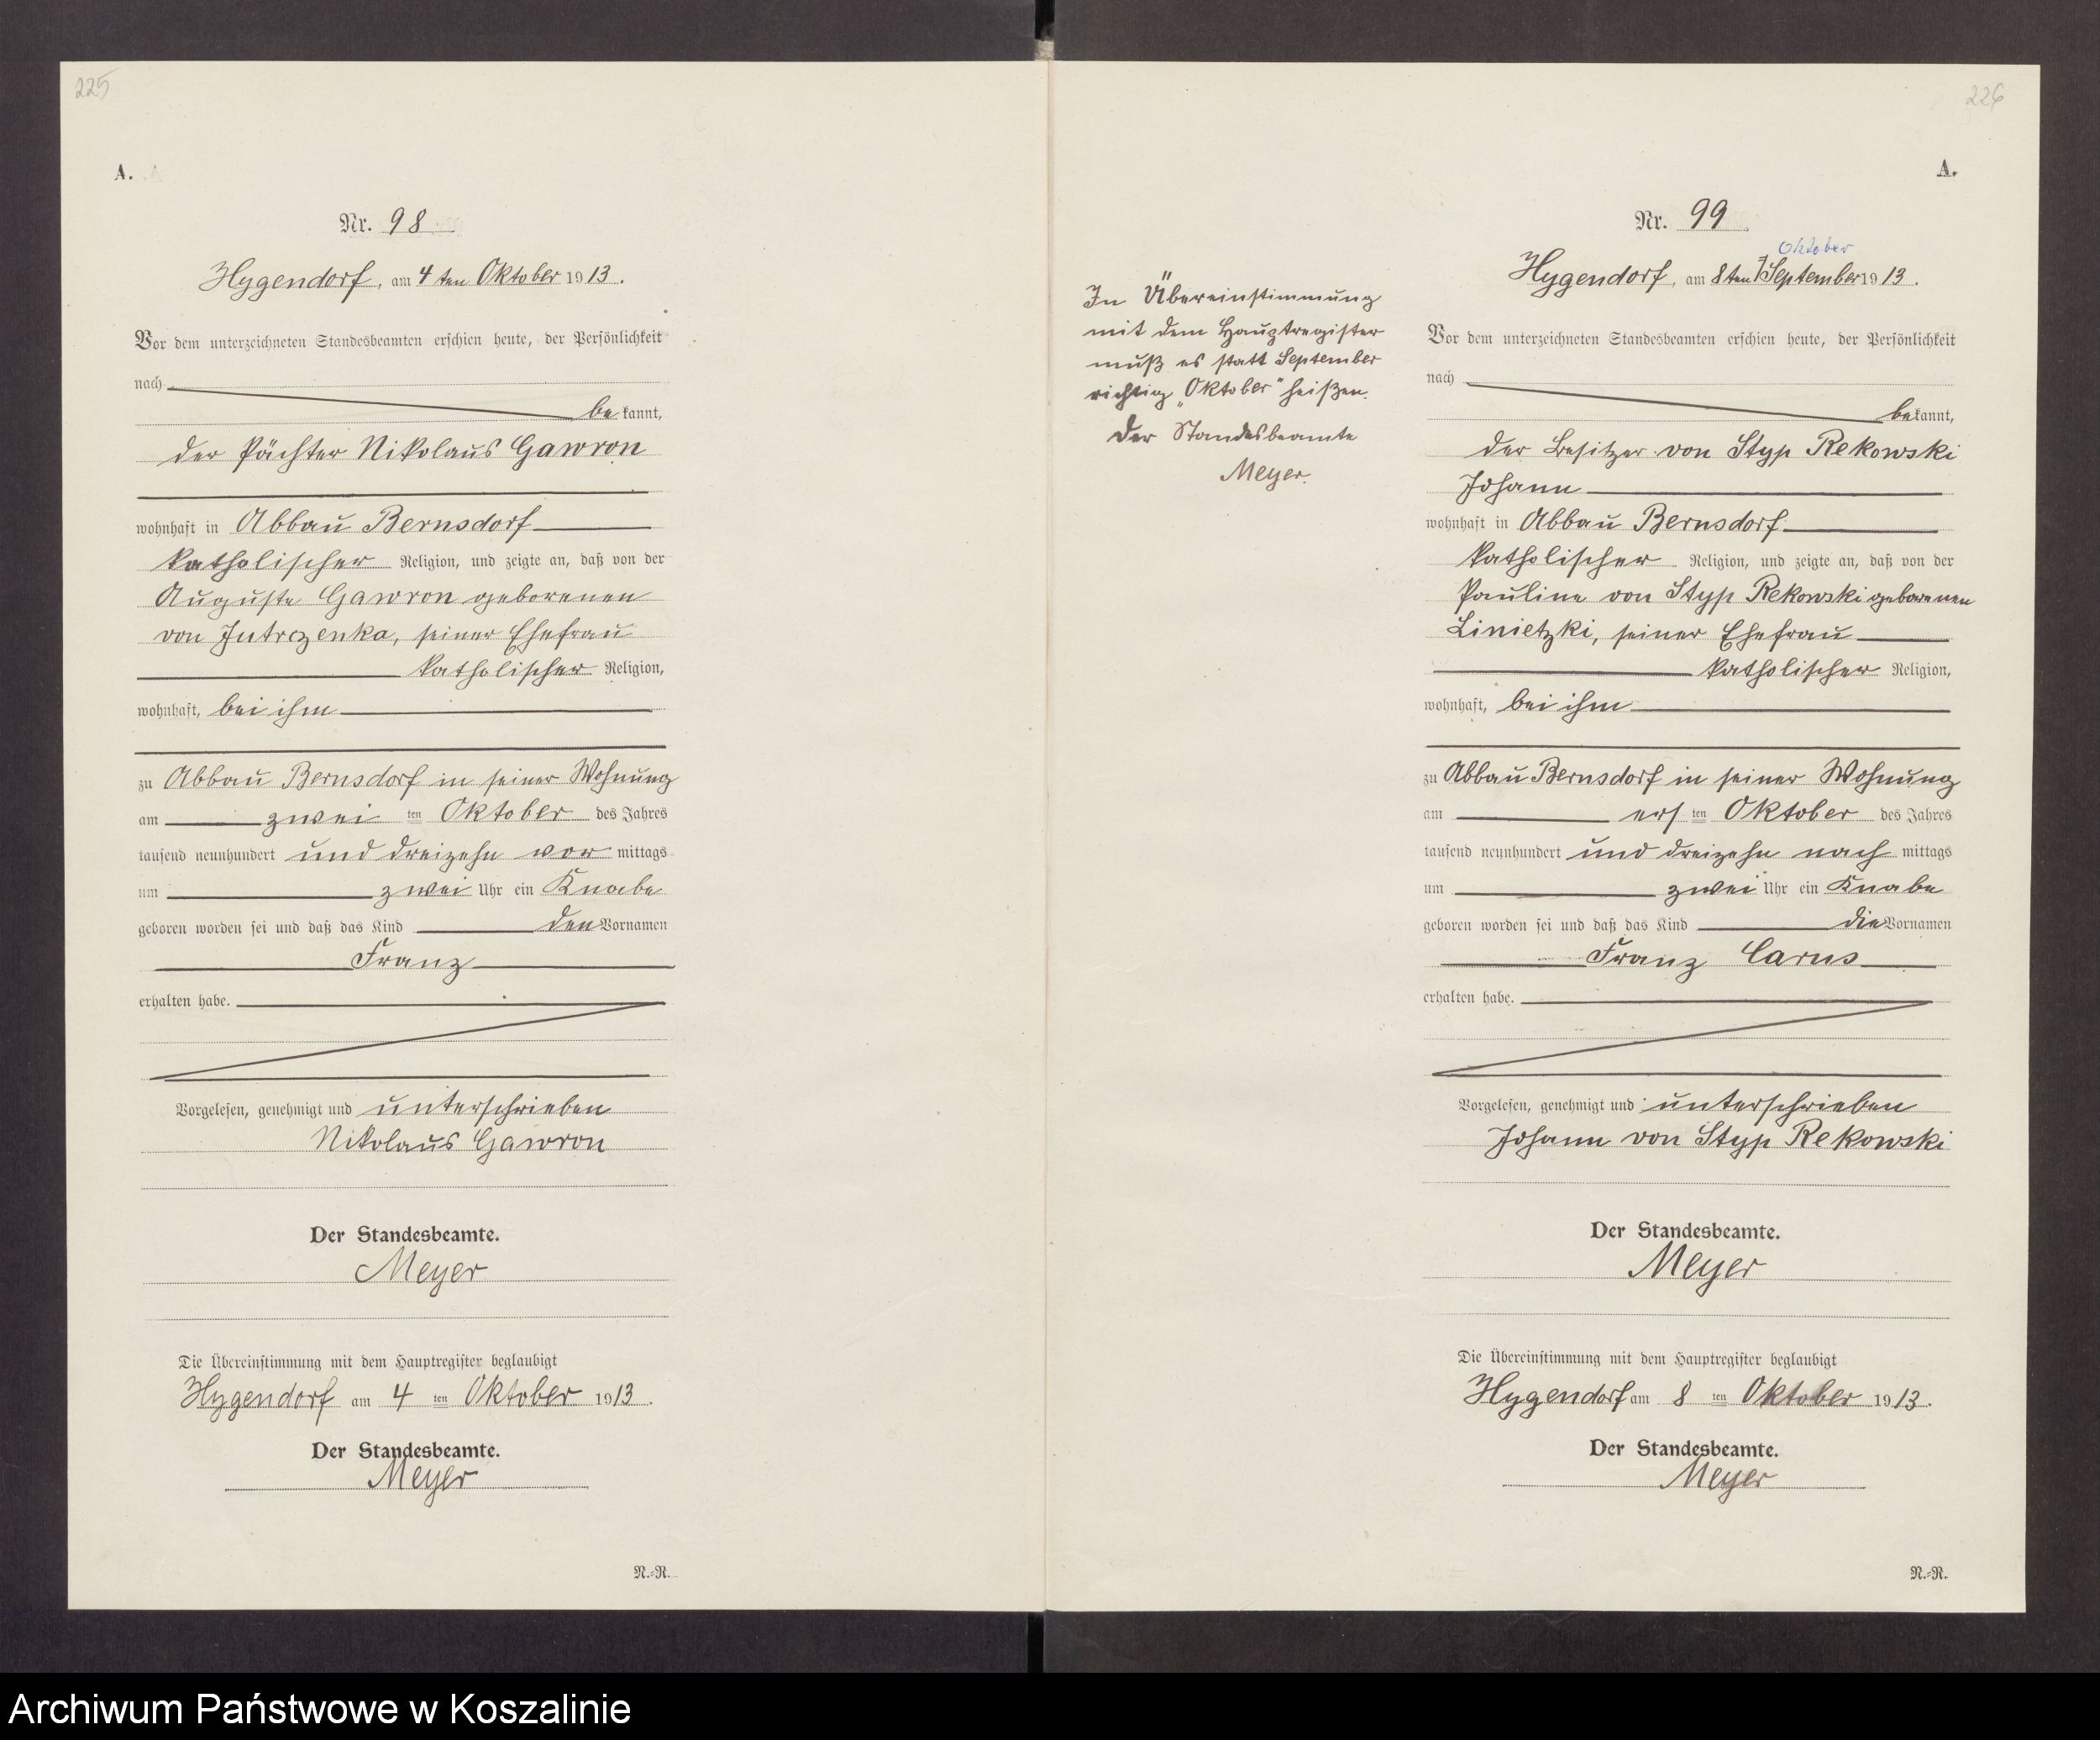 225
A.
Nr. 98
Hygendorf, am 4ten Oktober 1913.
Vor dem unterzeichneten Standesbeamten erschien heute, der Persönlichkeit
nach
bekannt,
der Pächter Nikolaus Gawron
wohnhaft in Abbau Bernsdorf
katholischer Religion, und zeigte an, daß von der
Auguste Gawron geborenen
von Jutrczenka, seiner Ehefrau
katholischer Religion,
wohnhaft, bei ihm
zu Abbau Bernsdorf in seiner Wohnung
am zwei ten Oktober des Jahres
tausend neunhundert und dreizehn vor mittags
um zwei Uhr ein Knabe
geboren worden sei und daß das Kind den Vornamen
Franz
erhalten habe.
Vorgelesen, genehmigt und unterschrieben
Nikolaus Gawron
Der Standesbeamte.
Meyer
Die Übereinstimmung mit dem Hauptregister beglaubigt
Hygendorf am 4 ten Oktober 1913.
Der Standesbeamte.
Meyer
N.-R.
226
A.
In Übereinstimmung
mit dem Hauptregister
muß es statt September
richtig „Oktober" heißen.
Der Standesbeamte
Meyer.
Nr. 99
Oktober
Hygendorf, am 8ten September 1913.
Vor dem unterzeichneten Standesbeamten erschien heute, der Persönlichkeit
nach
bekannt,
der Besitzer von Styp Rekowski
Johann
wohnhaft in Abbau Bernsdorf
katholischer Religion, und zeigte an, daß von der
Pauline von Styp Rekowski geborenen
Linietzki, seiner Ehefrau
katholischer Religion,
wohnhaft, bei ihm
zu Abbau Bernsdorf in seiner Wohnung
am ers ten Oktober des Jahres
tausend neunhundert und dreizehn nach mittags
um zwei Uhr ein Knabe
geboren worden sei und daß das Kind die Vornamen
Franz Carus
erhalten habe.
Vorgelesen, genehmigt und unterschrieben
Johann von Styp Rekowski
Der Standesbeamte.
Meyer
Die Übereinstimmung mit dem Hauptregister beglaubigt
Hygendorf am 8 ten Oktober 1913.
Der Standesbeamte.
Meyer
N.-R.
Archiwum Państwowe w Koszalinie